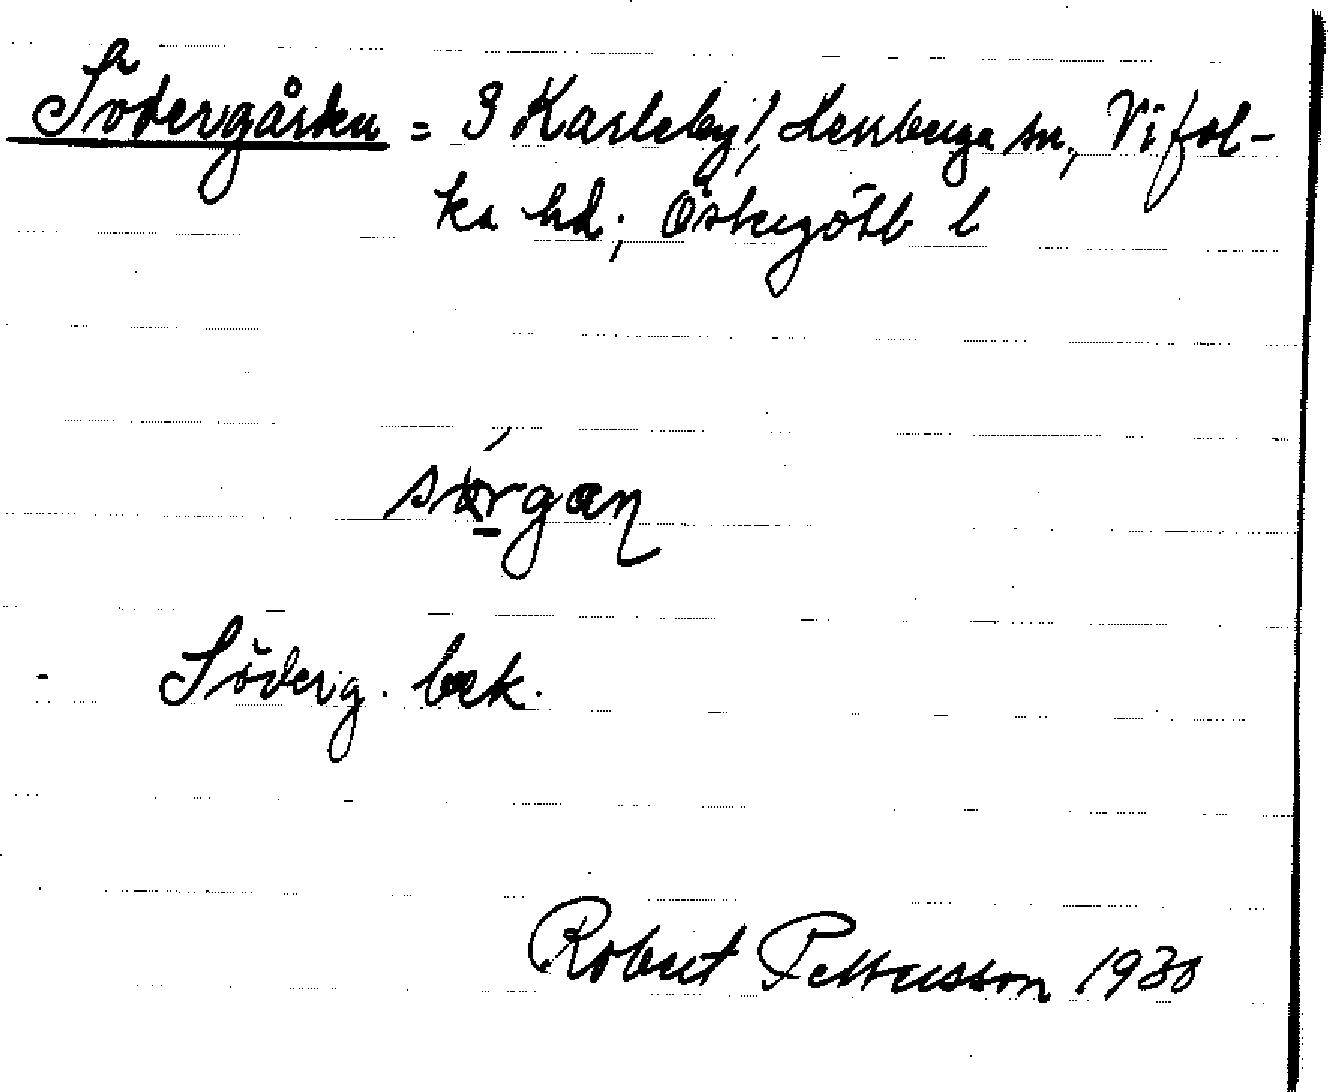 Södergården = I Karleby, Herrberga sn, Vifol-
ka hd; Östergötl l
sörgan
Söderg. bek.
Robert Pettersson 1930